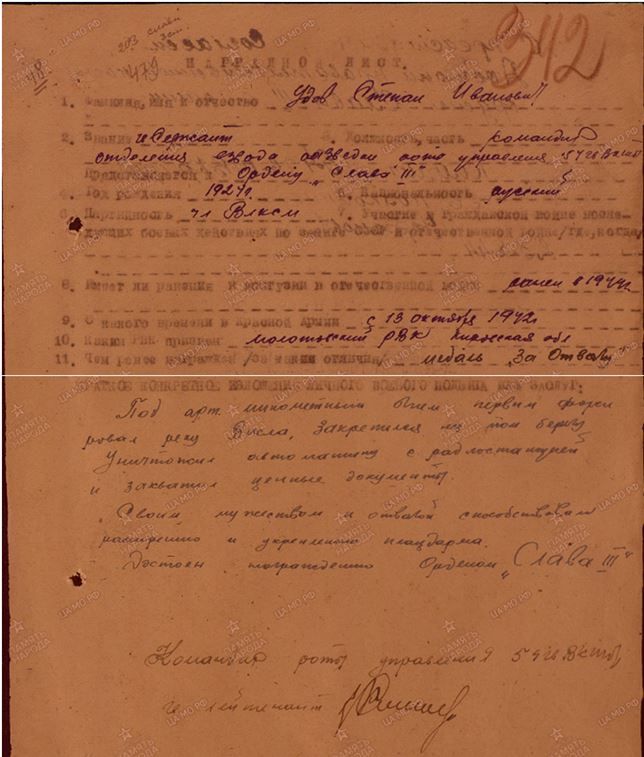 203 славы
3ст.
342
48
НАГРАДНОЙ ЛИСТ.
1. Фамилия, имя и отчество Удов Степан Иванович
2. Звание Гв Сержант 3. Должность, часть командир
отделения взвода разведки роты управления 54 гв
Представляется к Ордену „Слава III"
4. Год рождения 1924г. 5. Национальность русский
6. Партийность чл Влксм 7. Участие в гражданской войне после-
дующих боевых действиях по защите и отечественной войне/где, когда/
8. Имеет ли ранения и контузии в отечественной войне ранен в 1944г.
9. С какого времени в Красной Армии с 13 октября 1942г.
10. Каким РВК призван Молотовский РВК Кировская обл
11. Чем ранее награжден /за какие отличия/ медаль „За Отвагу"
КРАТКОЕ КОНКРЕТНОЕ ИЗЛОЖЕНИЕ ЛИЧНОГО БОЕВОГО ПОДВИГА ИЛИ ЗАСЛУГ:
Под арт. минометным огнем первым форси
ровал реку Висла, закрепился на том берегу
Уничтожил автомашину с радиостанцией
и захватил ценные документы.
Своим мужеством и отвагой способствовал
расширению и укреплению плацдарма.
Достоен награждению Орденом „Слава III"
Командир роты управления 54 гв
гв лейтенант